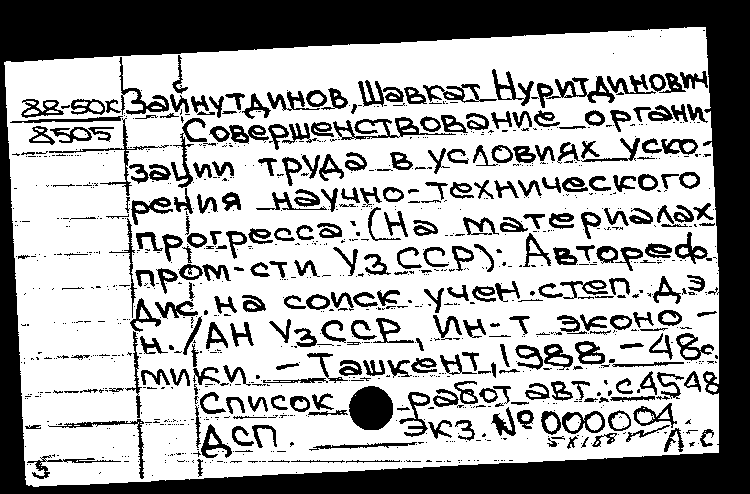 88-50к Зайнутдинов, Шавкат Нуритдинович
8505 Совершенствование органи-
зации труда в условиях уско-
рения научно-технического
прогресса: (На материалах
пром-сти УзССР): Автореф.
дис. на соиск. учен. степ. д.э.
н. / АН УзССР, Ин-т эконо-
мики. - Ташкент, 1988. - 48с.
Список работ авт.: с 45-48
ДСП. Экз. № 000004.
А.С
5